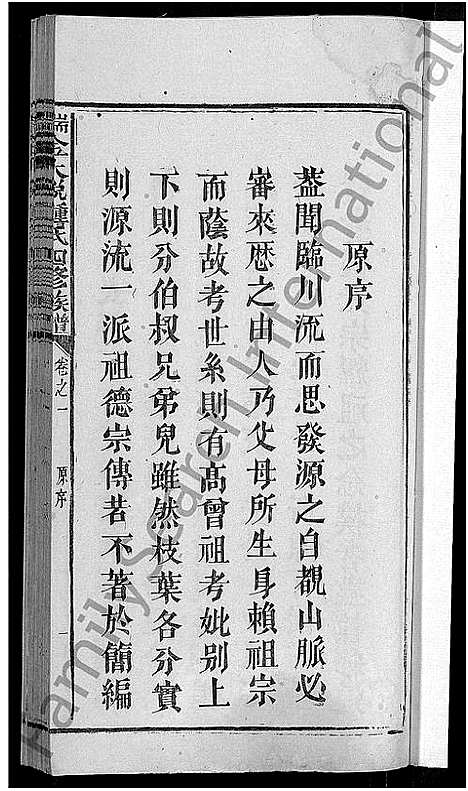 原序
蓋聞臨川流而思發源之自覩山脈必
審來歷之由人乃父母所生身賴祖宗
而蔭故考世系則有高曾祖考妣別上
下則分伯叔兄弟兒雖然枝葉各分實
則源流一派祖德宗傳若不著於簡編
鍾氏四修族譜
卷之一
原序
一
FamilySearch International